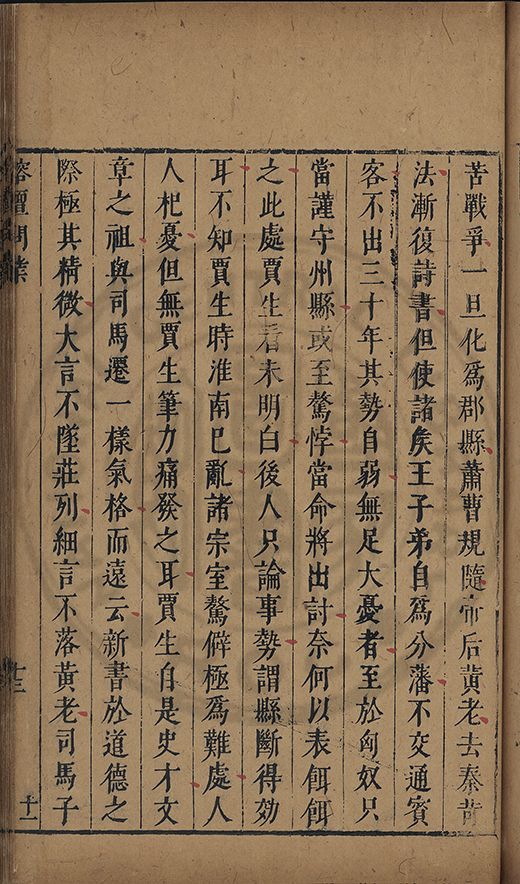 苦戰爭一旦化爲郡縣蕭曹規隨帝后黃老去秦苛
法漸復詩書但使諸矦王子弟自爲分藩不交通賓
客不出三十年其勢自弱無足大憂者至於匈奴只
當謹守州縣或至驁悖當命將出討奈何以表餌餌
之此處賈生看未明白後人只論事勢謂縣斷得効
耳不知賈生時淮南巳亂諸宗室驁僻極爲難處人
人杞憂但無賈生筆力痛發之耳賈生自是史才文
章之祖與司馬遷一樣氣格而遠云新書於道德之
際極其精微大言不墜莊列細言不落黃老司馬子
榕壇問業
十三
十一